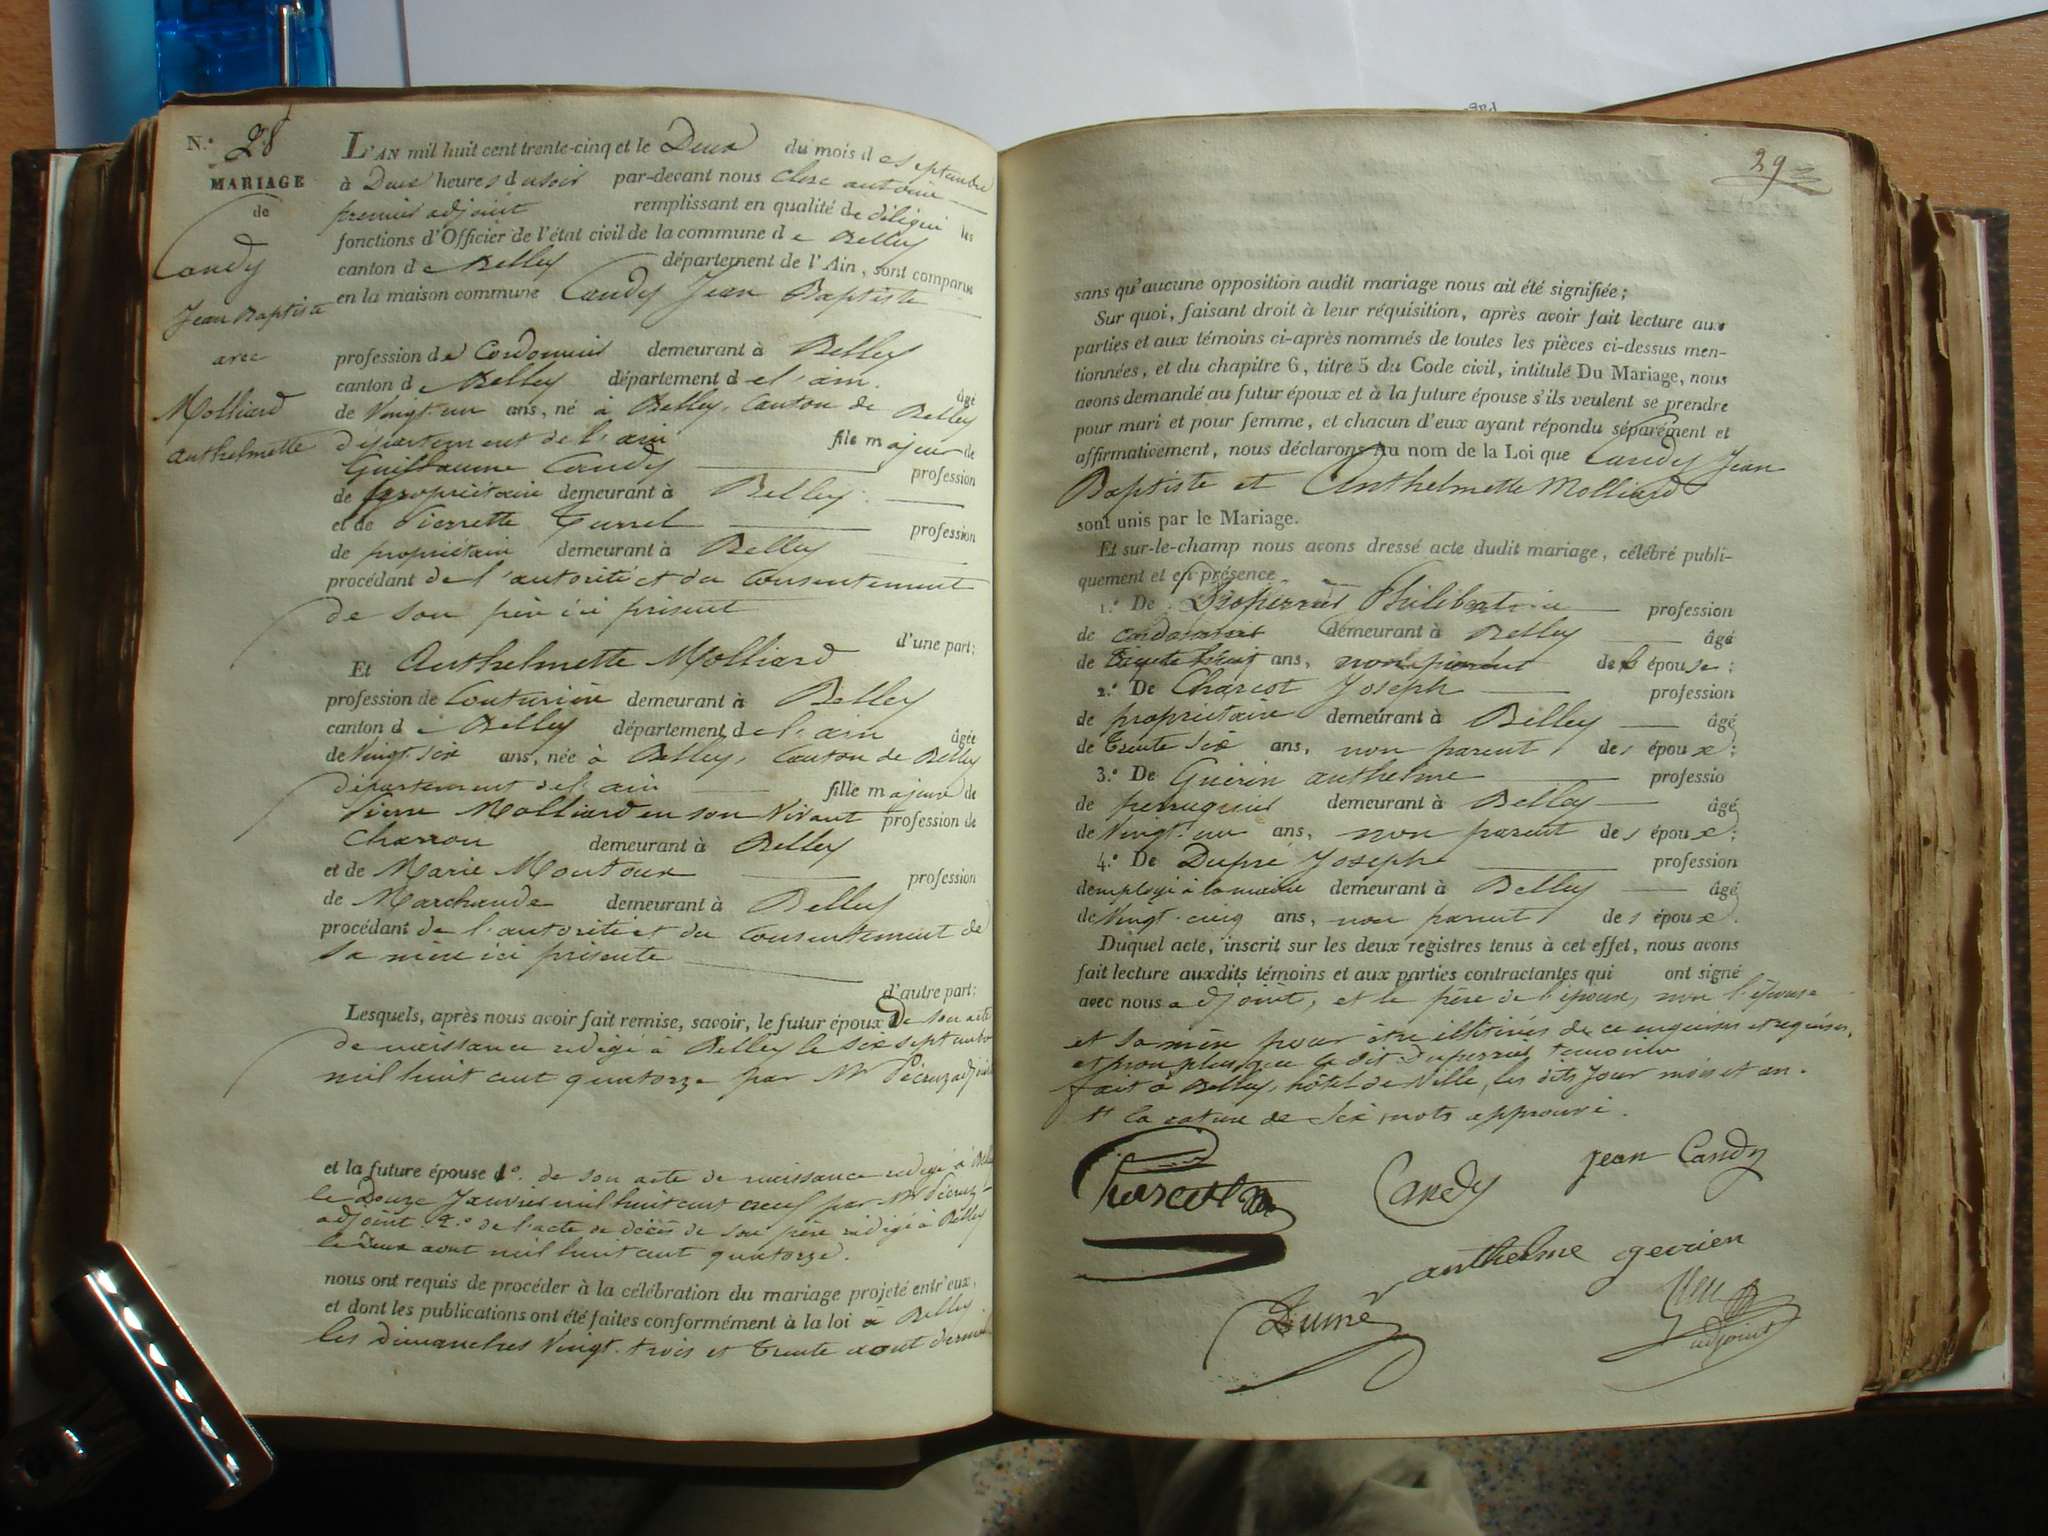 N.° 28
MARIAGE
de
Candy
Jean Baptiste
avec
Molliard
Anthelmette
L'AN mil huit cent trente-cinq et le Deux du mois de septembre
à Deux heures du soir par-devant nous Clerc antoine
premier adjoint remplissant en qualité de délégué les
fonctions d'Officier de l'état civil de la commune de Belley
canton de Belley département de l'Ain, sont comparus
en la maison commune Candy Jean Baptiste
profession de Cordonnier demeurant à Belley
canton de Belley département de l'ain. âgé
de Vingt un ans, né à Belley, Canton de Belley
département de l'ain fils majeur de
Guillaume Candy profession
de propriétaire demeurant à Belley
et de Pierrette Turrel profession
de propriétaire demeurant à Belley
procédant de l'autorité et du Consentement
de son père ici présent
d'une part;
Et Anthelmette Molliard
profession de Couturière demeurant à Belley
canton de Belley département de l'ain âgée
de Vingt six ans, née à Belley, Canton de Belley
département de l'ain fille majeure de
Pierre Molliard en son Vivant profession de
Charron demeurant à Belley
et de Marie Montoux profession
de Marchande demeurant à Belley
procédant de l'autorité et du Consentement de
sa mère ici présente
d'autre part;
Lesquels, après nous avoir fait remise, savoir, le futur époux De son acte
de naissance rédigé à Belley le six septembre
mil huit cent quatorze par Mr Pécruz adjoint
et la future épouse 1°. de son acte de naissance rédigé à Belley
le Douze Janvier mil huit cent neuf par Mr Pécruz
adjoint. 2.° de l'acte de décès de son père rédigé à Belley
le Deux aout mil huit cent quatorze.
nous ont requis de procéder à la célébration du mariage projeté entr'eux,
et dont les publications ont été faites conformément à la loi à Belley.
les Dimanches Vingt-trois et Trente aout dernier
29
sans qu'aucune opposition audit mariage nous ait été signifiée;
Sur quoi, faisant droit à leur réquisition, après avoir fait lecture aux
parties et aux témoins ci-après nommés de toutes les pièces ci-dessus men-
tionnées, et du chapitre 6, titre 5 du Code civil, intitulé Du Mariage, nous
avons demandé au futur époux et à la future épouse s'ils veulent se prendre
pour mari et pour femme, et chacun d'eux ayant répondu séparément et
affirmativement, nous déclarons Au nom de la Loi que Candy Jean
Baptiste et Anthelmette Molliard
sont unis par le Mariage.
Et sur-le-champ nous avons dressé acte dudit mariage, célébré publi-
quement et en présence
1.° De profession
de demeurant à Belley âgé
de ans, non de épouse;
2.° De Charcot Joseph profession
de propriétaire demeurant à Belley âgé
de Trente six ans, non parent des époux;
3.° De Guérin anthelme professio
de perruquier demeurant à Belley âgé
de Vingt-un ans, non parent des époux;
4.° De Dupré Joseph profession
d'employé à la mairie demeurant à Belley âgé
de Vingt-cinq ans, non parent des époux.
Duquel acte, inscrit sur les deux registres tenus à cet effet, nous avons
fait lecture auxdits témoins et aux parties contractantes qui ont signé
avec nous adjoint, et le père de l'époux, non l'épouse
et sa mère pour être illitirés de ce enquises et requises,
et non plus que le dit Duperrier témoin
fait à Belley, hôtel de Ville, les dits jour mois et an.
la rature de six mots approuvé.
Candy
jean Candy
anthelme gevrien
adjoint